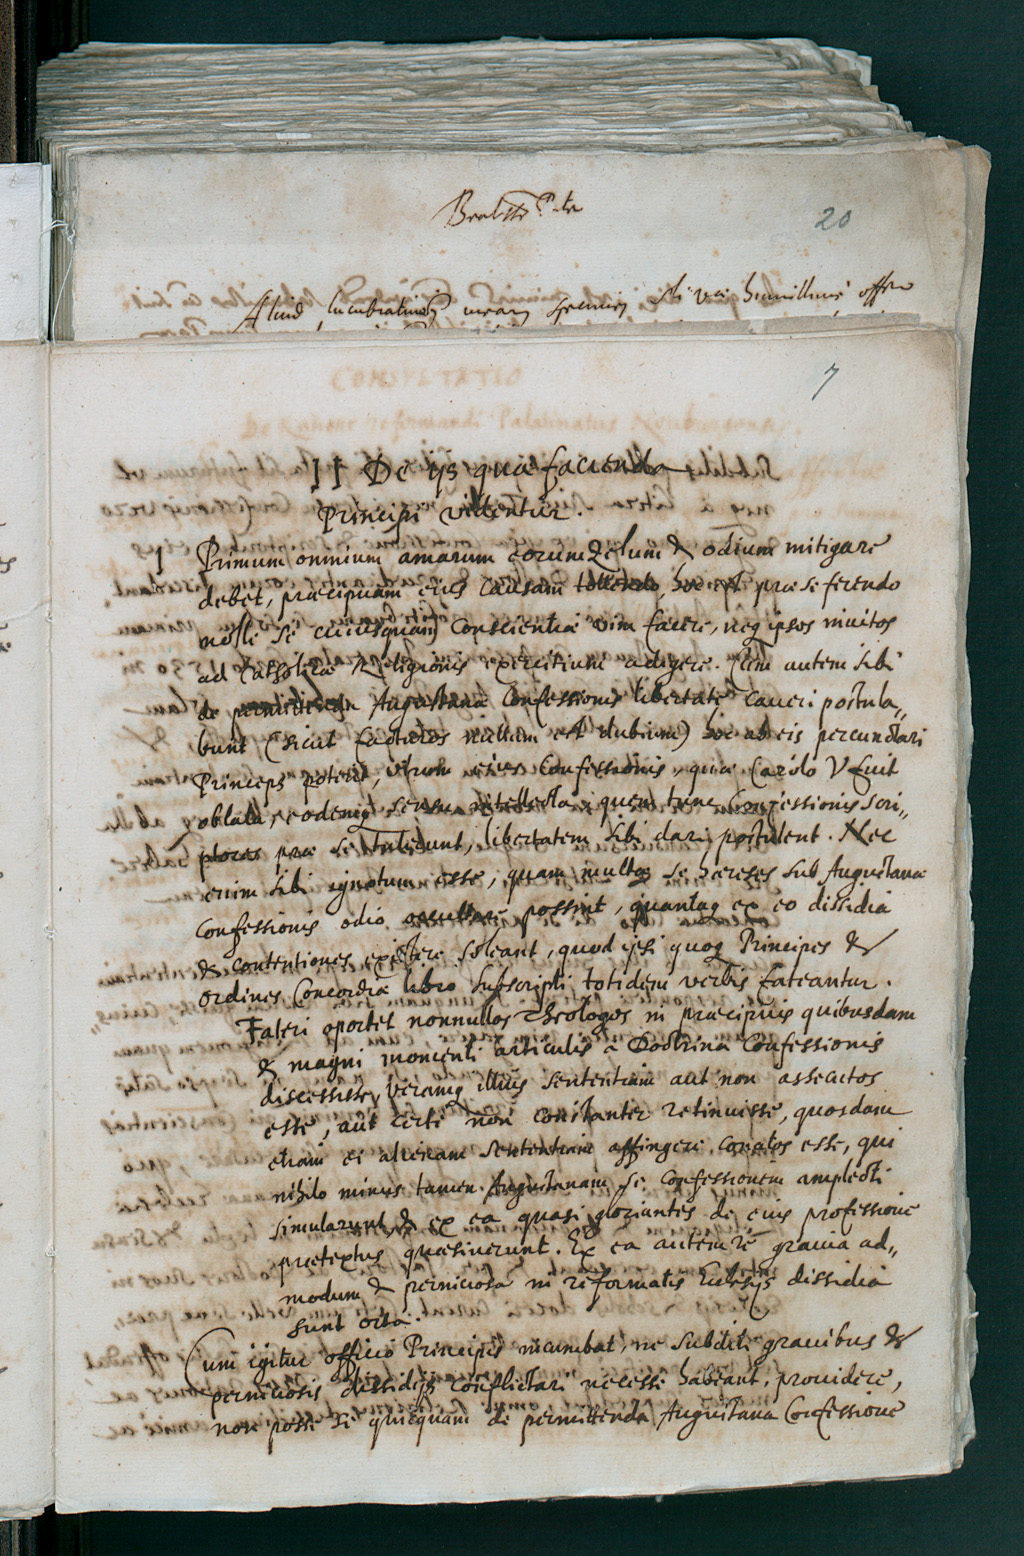 20
Aliud lucubrationis meae specimen Sti Vrae humillime offero
7
CONSULTATIO
De Ratione reformandi Palatinatus Neuburgensis
II De ijs quae facienda
Principi videntur.
Primum omnium amarum eorum zelum & odium mitigare
debet, praecipuam eius causam tollendo, hoc est prae se ferendo
nolle se cuiusquam conscientiae vim facere, neq ipsos invitos
ad Catholicae Religionis exercitium adigere. Cum autem sibi
de Augustanae Confessionis libertate caveri postula„
bunt (sicut facturos nullum est dubium) hoc ab eis percunctari
Princeps poterit, utrum eius Confessionis, quae Carolo V fuit
oblata, eodemq sensu intellecta, quem tunc Confessionis scri„
ptores prae se tulerunt, libertatem sibi dari postulent. Nec
enim sibi ignotum esse, quam multae se haereses sub Augustanae
Confessionis odio occultare possint, quantaq ex eo dissidia
& contentiones existere soleant, quod ipsi quoq Principes &
ordines Concordiae libro subscripti totidem verbis fateantur.
Fateri oportet nonnullos Theologos in praecipuis quibusdam
& magni momenti articulis a Doctrina Confessionis
discessisse, veramq illius sententiam aut non assecutos
esse, aut certe non constanter retinuisse, quosdam
etiam ei alienam sententiam affingere conatos esse, qui
nihilo minus tamen Augustanam se Confessionem amplecti
simularunt, & ex ea quasi gloriantes de eius professione
praetextus quaesiverunt. Ex ea autem re gravia ad„
modum & perniciosa in reformatis Ecclesijs dissidia
sunt orta.
Cum igitur officio Principis incumbat, ne subditi gravibus &
perniciosis dissidijs conflictari necesse habeant, providere,
non posse se quicquam de permittenda Augustana Confessione